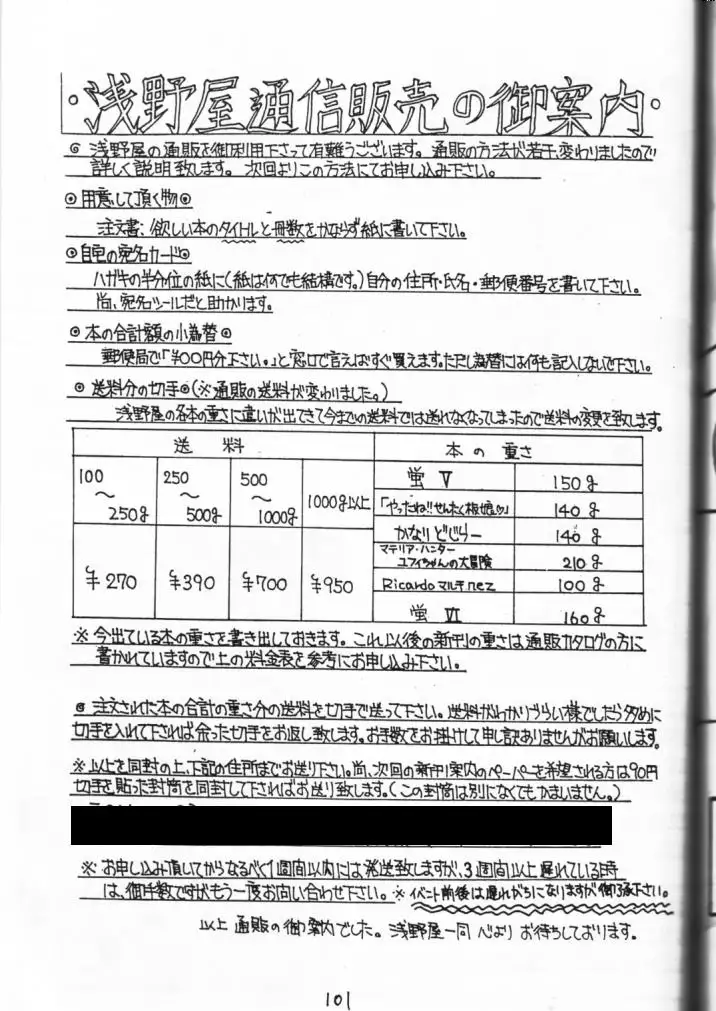 ・浅野屋通信販売の御案内・
◎ 浅野屋の通販を御利用下さって有難うございます。通販の方法が若干、変わりましたので
詳しく説明致します。次回よりこの方法にてお申し込み下さい。
◎用意して頂く物◎
注文書：欲しい本のタイトルと冊数をかならず紙に書いて下さい。
◎自宅の宛名カード◎
ハガキの半分位の紙に(紙は何でも結構です。)自分の住所・氏名・郵便番号を書いて下さい。
尚、宛名シールだと助かります。
◎ 本の合計額の小為替◎
郵便局で「¥〇〇円分下さい。」と窓口で言えばすぐ買えます。ただし為替には何も記入しないで下さい。
◎ 送料分の切手◎(※通販の送料が変わりました。)
浅野屋の各本の重さに違いが出てきて今までの送料では送れなくなってしまったので送料の変更を致します。
送 料
本 の 重さ
100 〜 250g
250 〜 500g
500 〜 1000g
1000g以上
¥270
¥390
¥700
¥950
蛍 Ⅴ 150g
「やったね!!せんたく板娘♡」 140g
かなりどじらー 140g
マテリア・ハンター
ユフィちゃんの大冒険 210g
Ricardoマルチnez 100g
蛍 Ⅵ 160g
※ 今出ている本の重さを書き出しておきます。これ以後の新刊の重さは通販カタログの方に
書かれていますので上の料金表を参考にお申し込み下さい。
◎ 注文された本の合計の重さ分の送料を切手で送って下さい。送料がわかりづらい様でしたら多めに
切手を入れて下されば余った切手をお返し致します。お手数をお掛けして申し訳ありませんがお願いします。
※以上を同封の上、下記の住所までお送り下さい。尚、次回の新刊案内のペーパーを希望される方は90円
切手を貼った封筒を同封して下さればお送り致します。(この封筒は別になくてもかまいません。)
※ お申し込み頂いてからなるべく1週間以内には発送致しますが、3週間以上遅れている時
は、御手数ですがもう一度お問い合わせ下さい。※イベント前後は遅れがちになりますが御了承下さい。
以上 通販の御案内でした。浅野屋一同 心より お待ちしております。
101